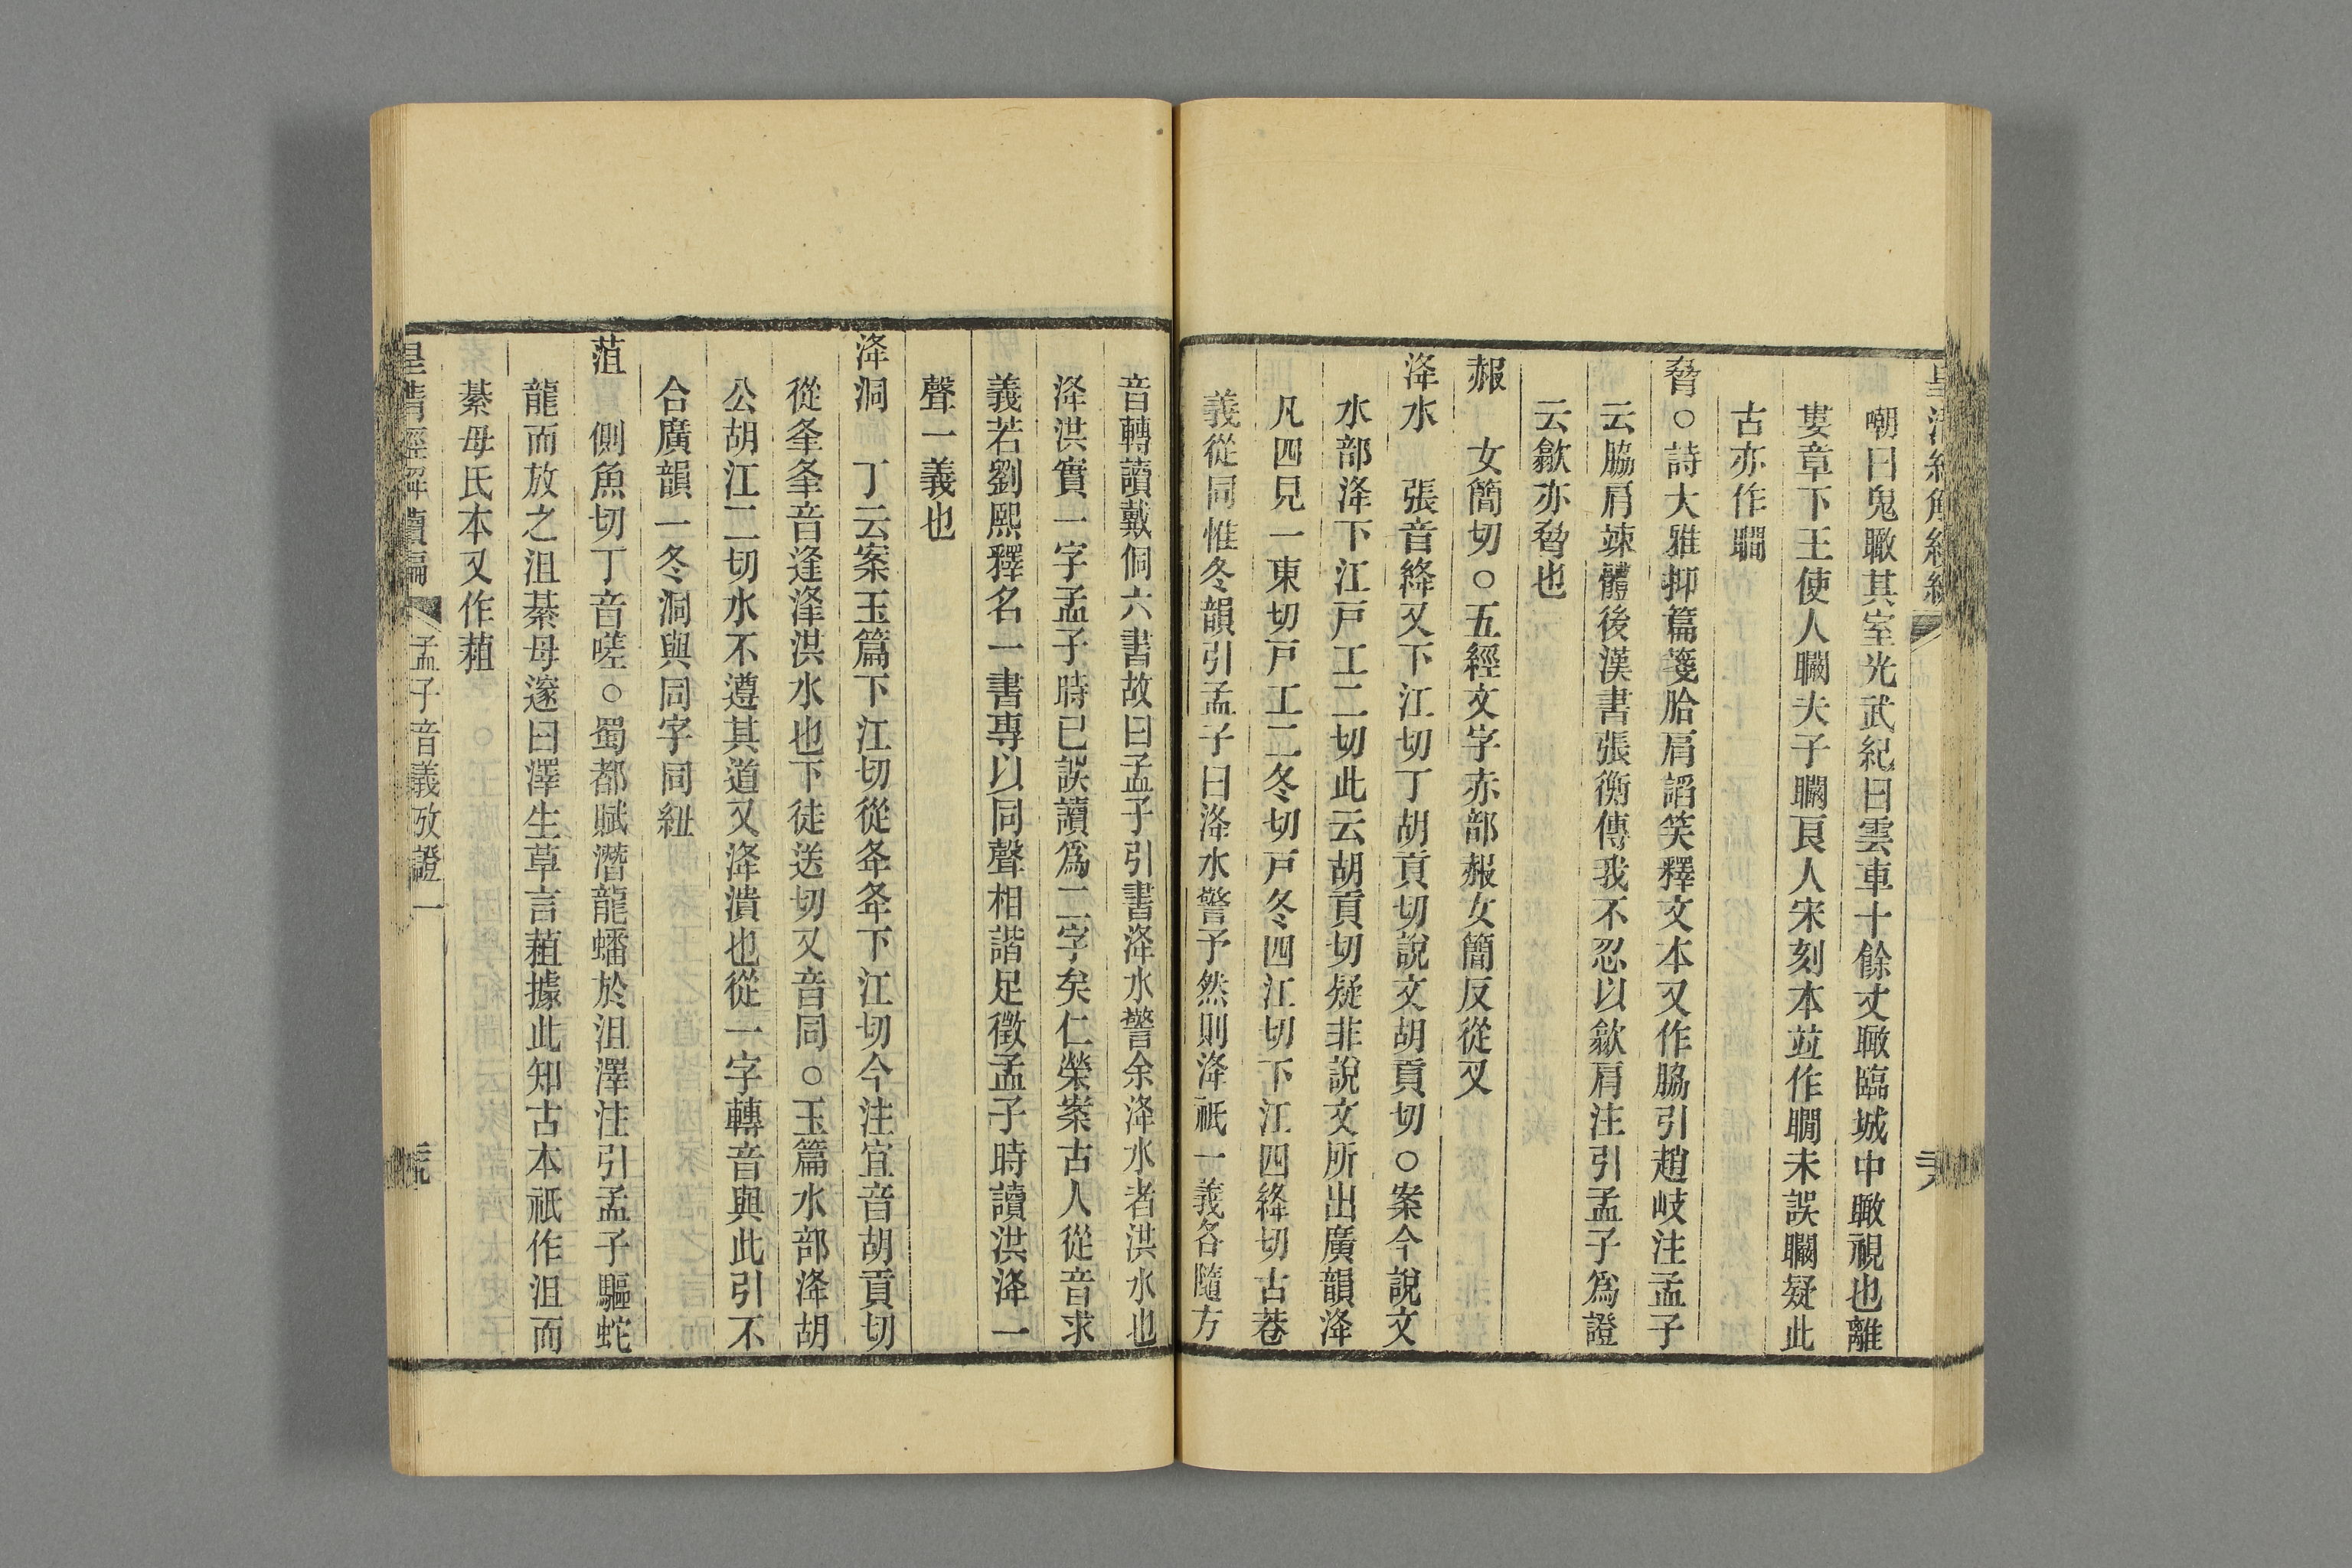 嘲曰鬼瞰其室光武紀曰雲車十餘丈瞰臨城中瞰視也離
婁章下王使人瞷夫子瞷良人宋刻本竝作瞷未誤瞷疑此
古亦作瞷
脅○詩大雅抑篇箋胎肩諂笑釋文本又作脇引趙岐注孟子
云脇肩竦體後漢書張衡傳我不忍以歙肩注引孟子爲證
云歙亦脅也
赧　女簡切○五經文字赤部赧女簡反從㞋
洚水　張音絳又下江切丁胡貢切說文胡貢切○案今說文
水部洚下江戸工二切此云胡貢切疑非說文所出廣韻洚
凡四見一東切戸工二冬切戸冬四江切下江四絳切古巷
義從同惟冬韻引孟子曰洚水警予然則洚祇一義各隨方
音轉讀戴侗六書故曰孟子引書洚水警余洚水者洪水也
洚洪實一字孟子時已誤讀爲二字矣仁榮案古人從音求
義若劉熙釋名一書專以同聲相諧足徵孟子時讀洪洚一
聲一義也
洚洞　丁云案玉篇下江切從夅夅下江切今注宜音胡貢切
從夆夆音逢浲洪水也下徒送切又音同○玉篇水部洚胡
公胡江二切水不遵其道又洚潰也從一字轉音與此引不
合廣韻一冬洞與同字同紐
菹　側魚切丁音嗟○蜀都賦潛龍蟠於沮澤注引孟子驅蛇
龍而放之沮綦母邃曰澤生草言蒩據此知古本祇作沮而
綦母氏本又作蒩
皇淸經解續編　孟子音義攷證一